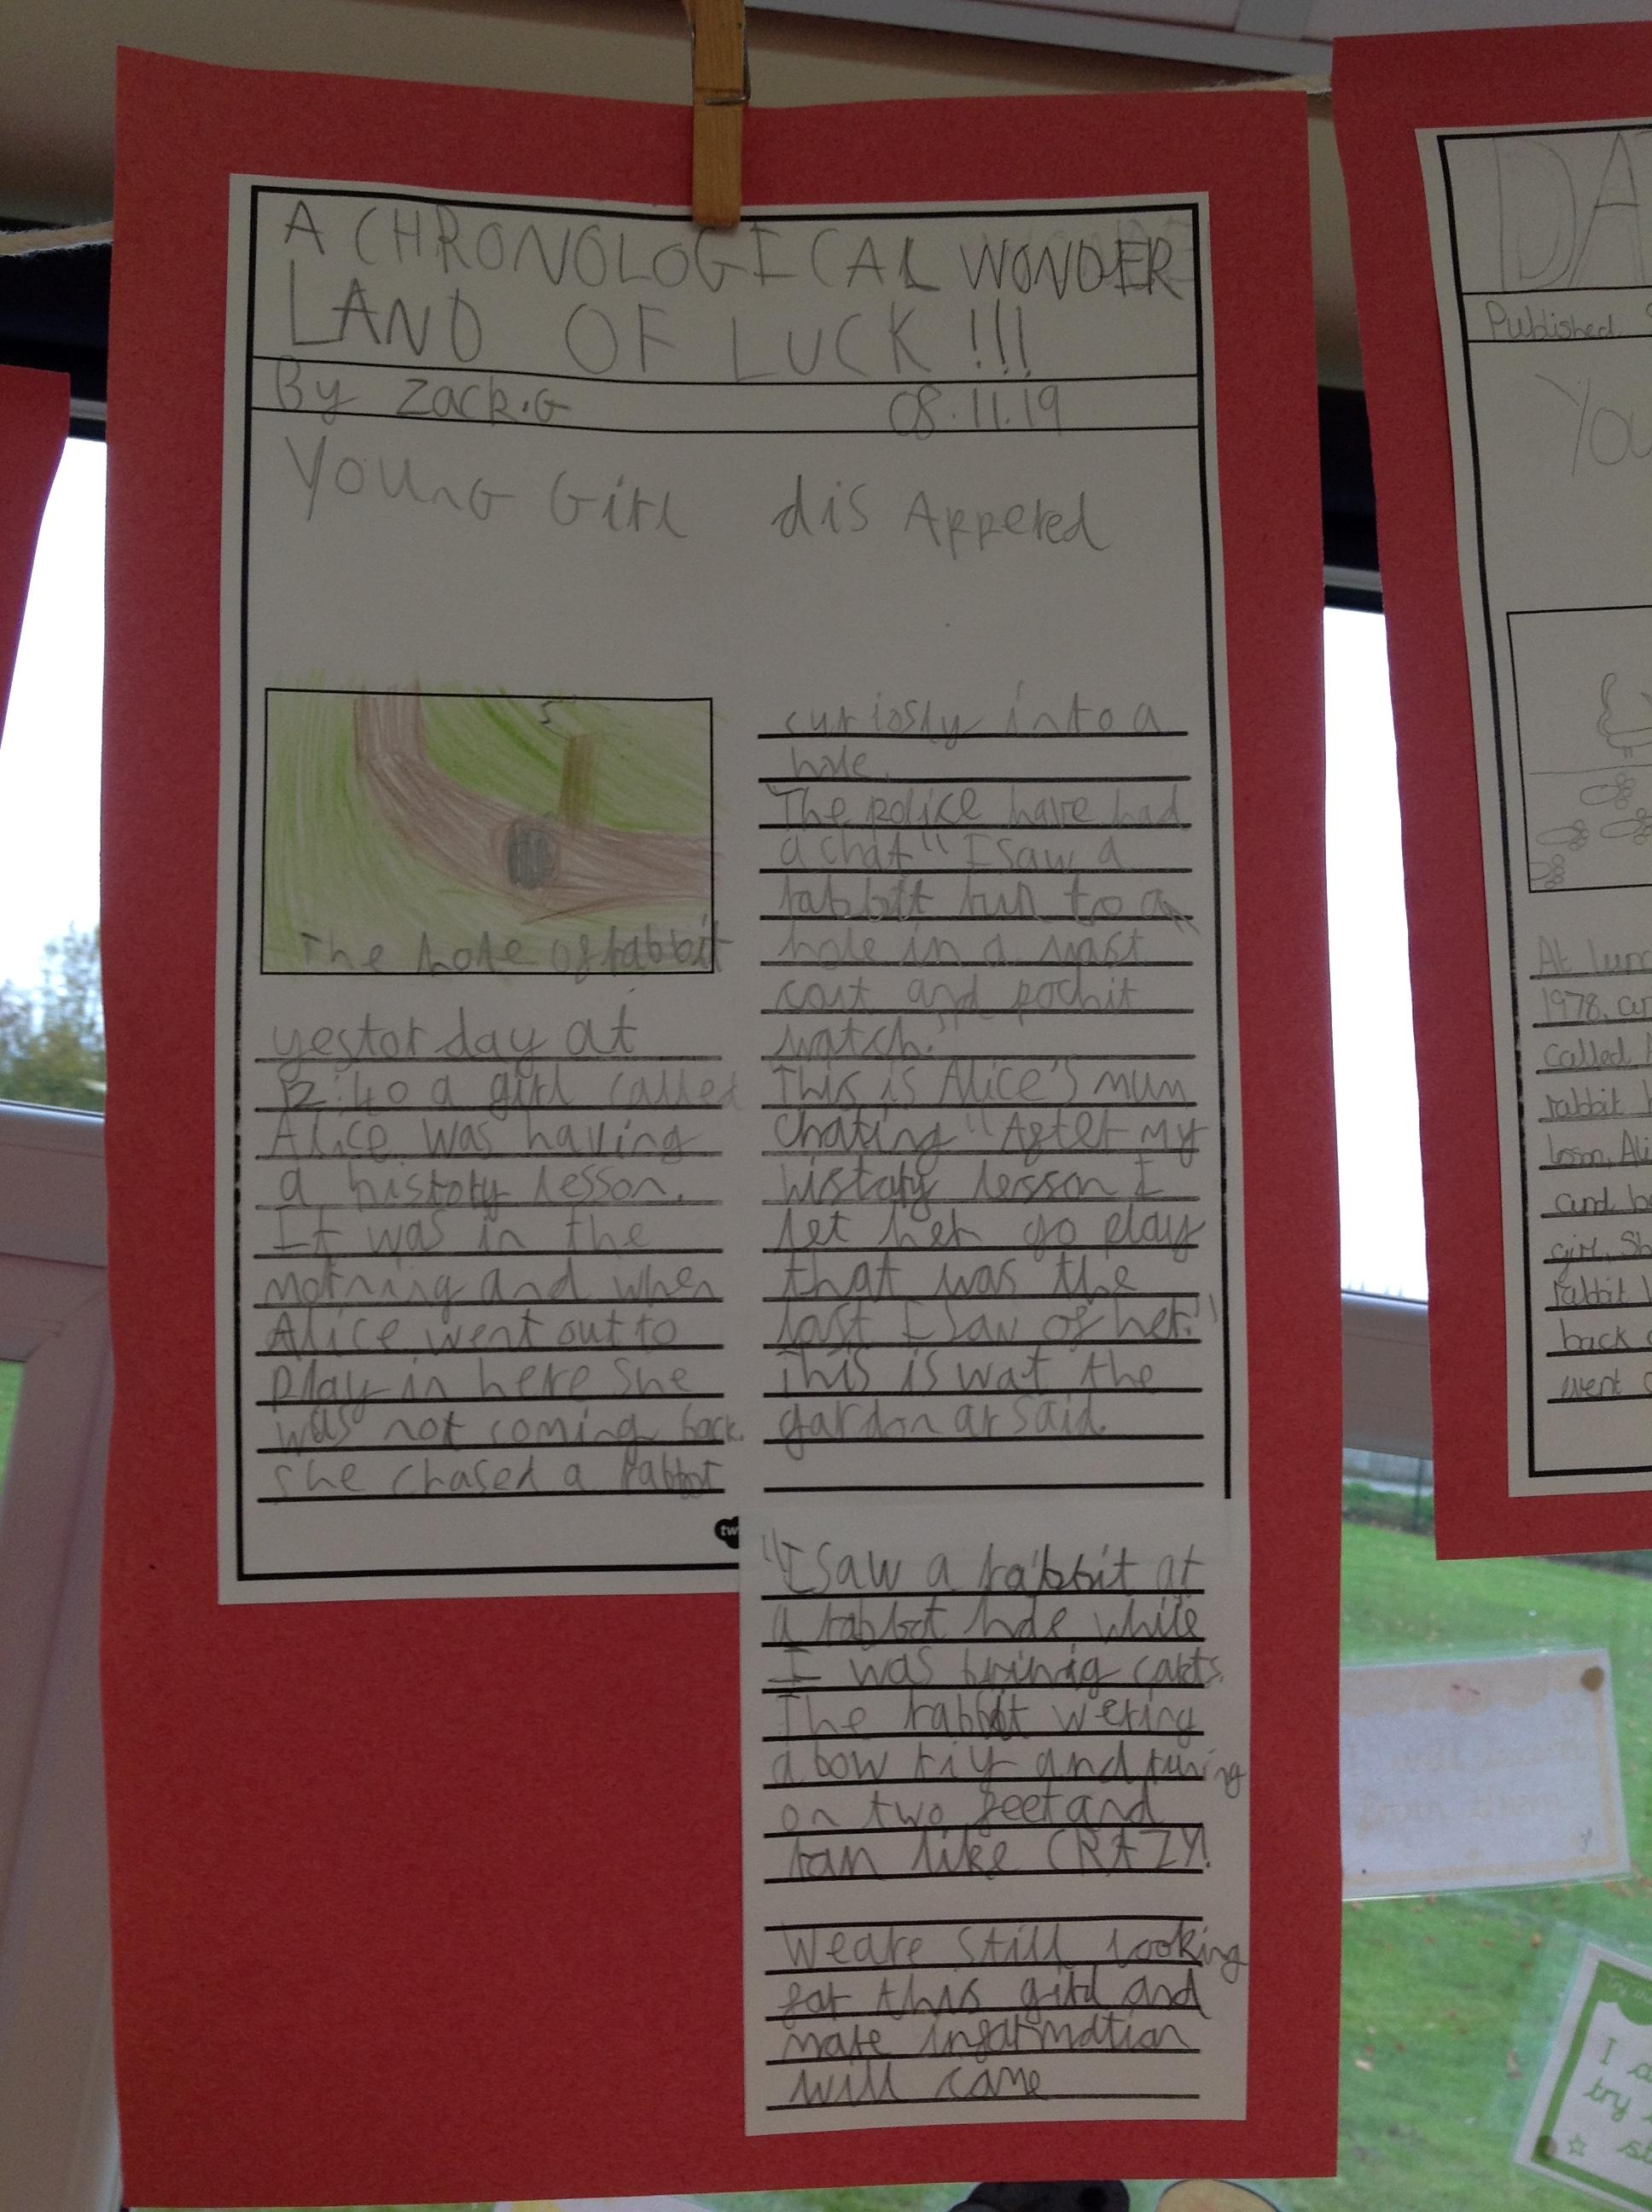 A CHRONOLOGICAL WONDER
LAND OF LUCK!!!
By Zack.G 08.11.19
Young Girl disAppered
The hole of rabbit
yestorday at
12:40 a girl called
Alice was having
a history lesson.
It was in the
morning and when
Alice went out to
play in here she
was not coming back.
she chased a rabbit
curiosly into a
hole.
The police have had
a chat "I saw a
rabbit run to a
hole in a wast
coat and pochit
watch."
This is Alice's mum
chating "After my
history lesson I
let her go play
that was the
last I saw of her."
This is wat the
gardonar said.
tw
"I saw a rabbit at
a rabbit hole while
I was
The rabbit wering
a bow tiy and runing
on two feet and
ran like CRAZY!
We are still looking
for this girl and
more information
will come
DA
Published
You
At lunc
1978, a
called
rabbit
lesson, Ali
and b
girl, Sh
rabbit
back
went
I
try